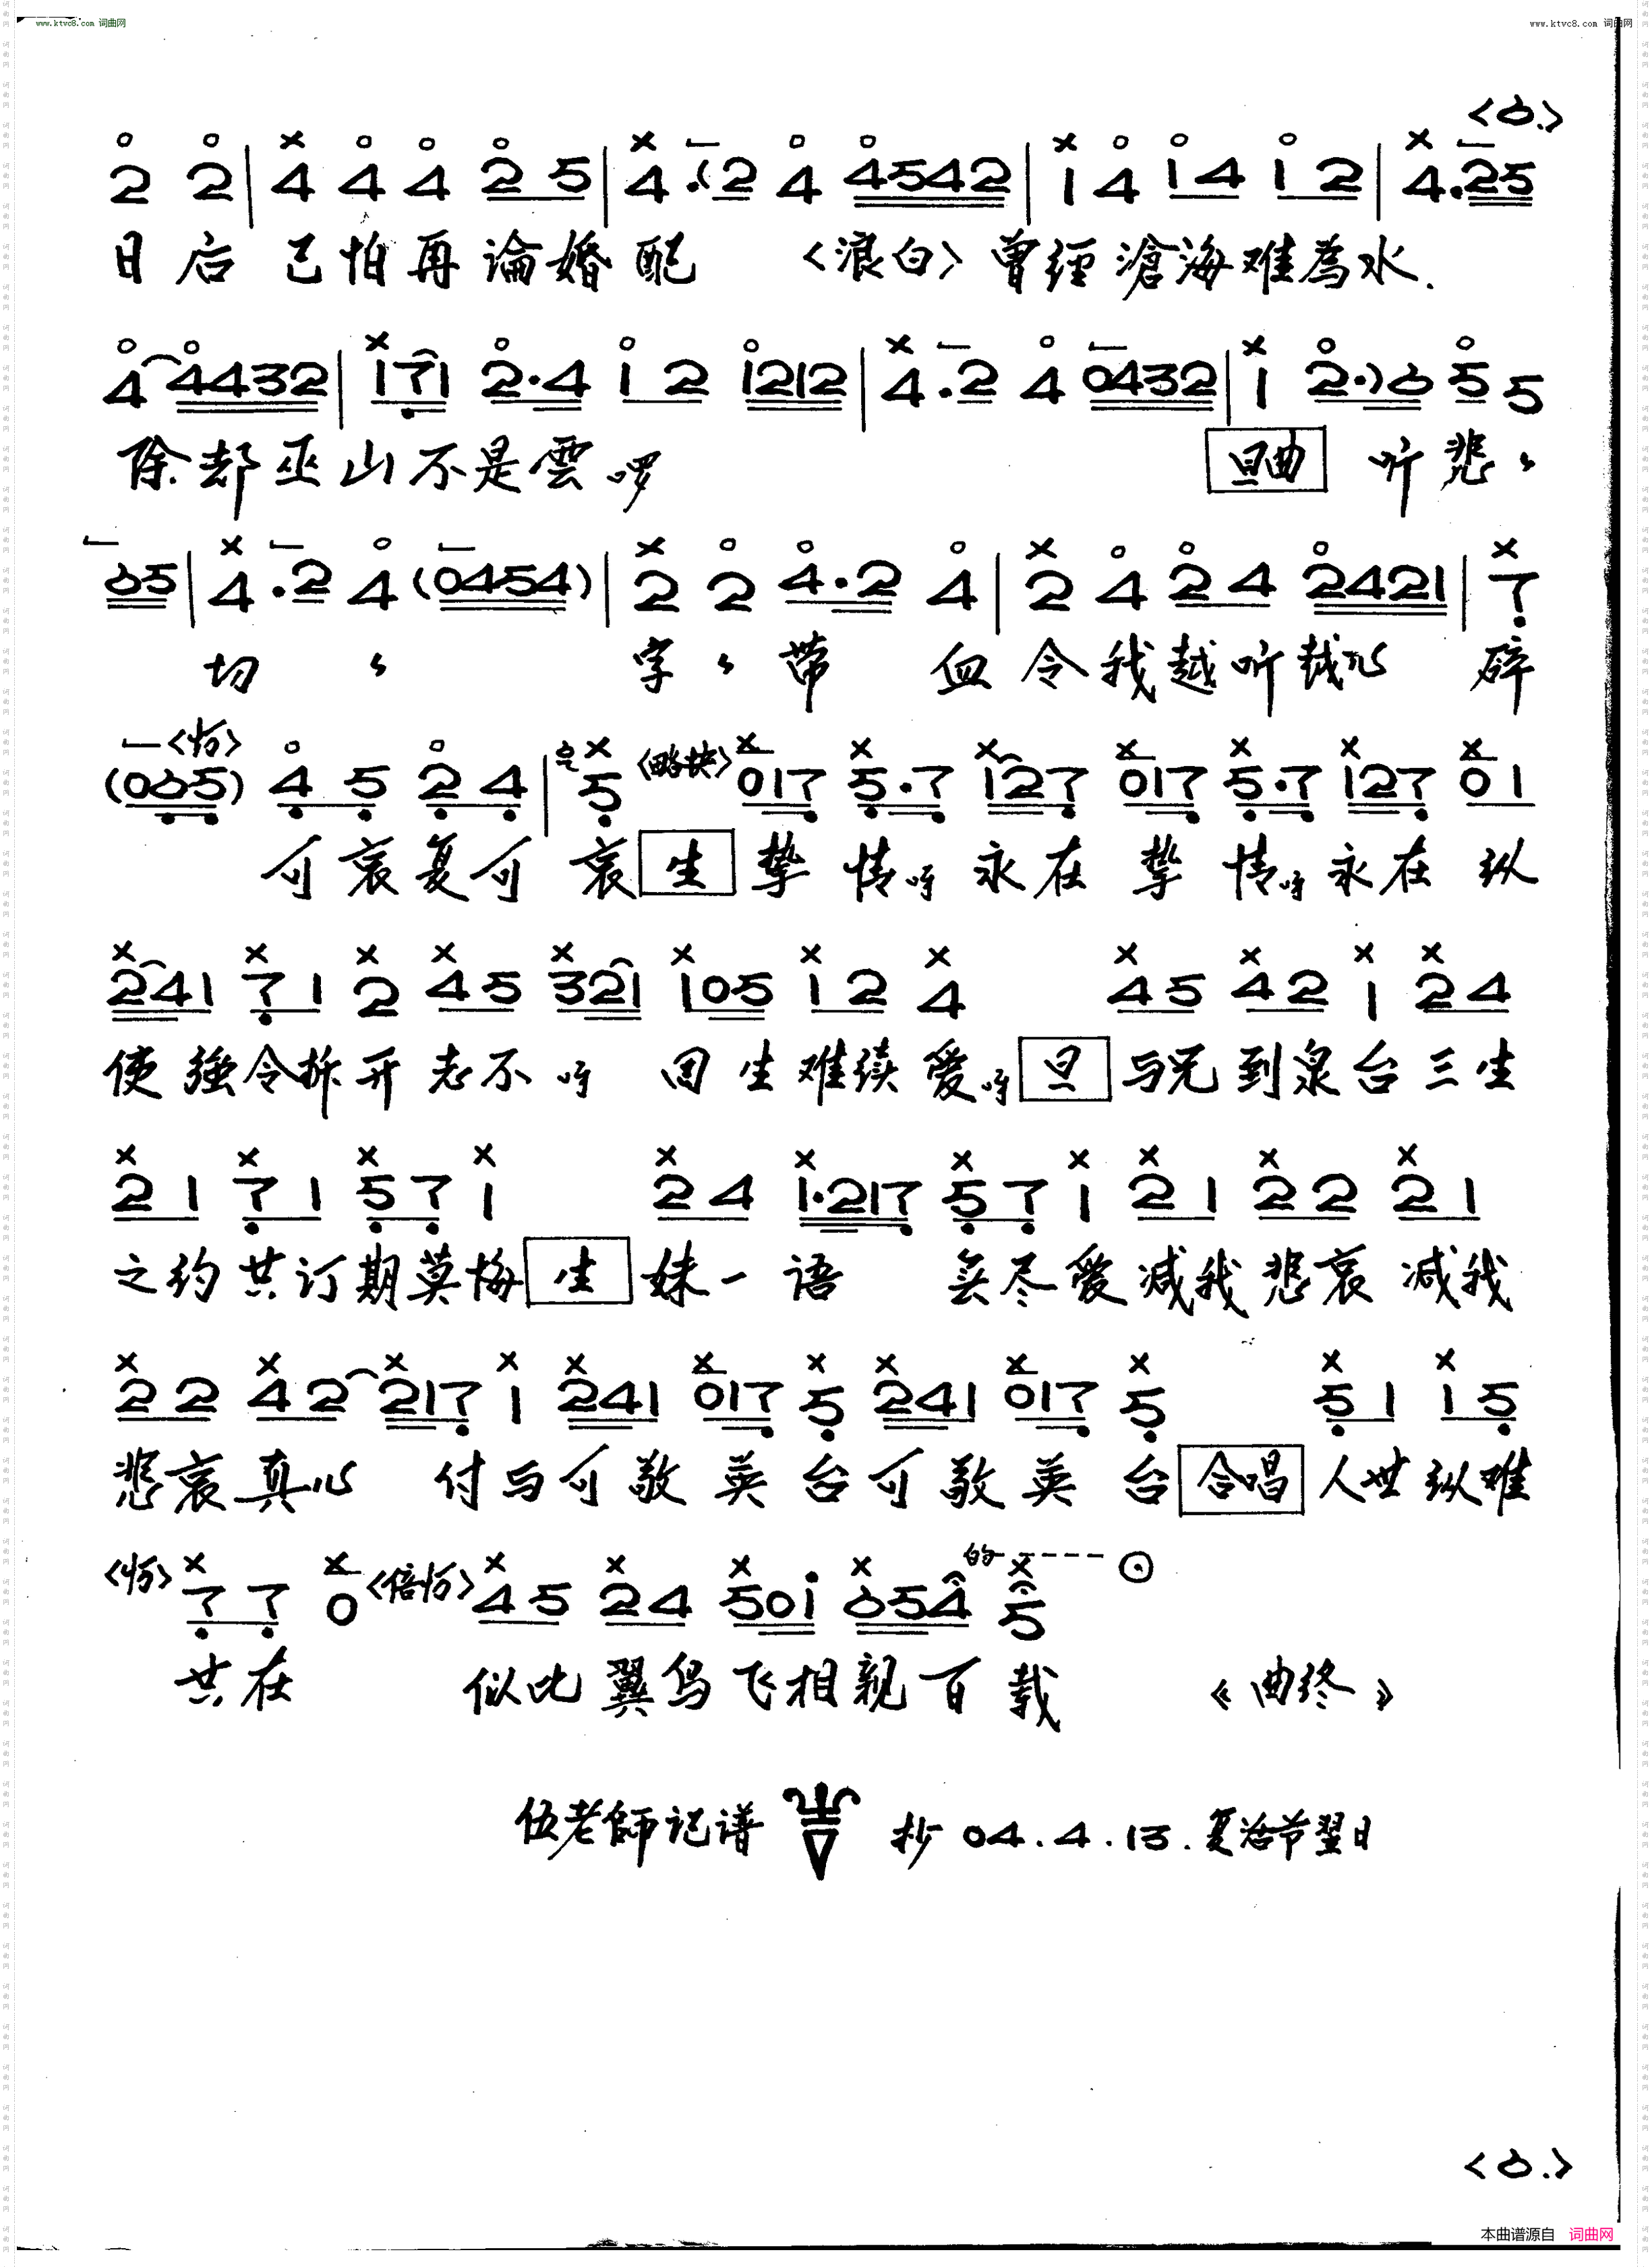 www.ktvc8.com 词曲网 www.ktvc8.com 词曲网
<6.>
2 2 | 4 4 4 2 5 | 4 .(2 4 4542 | 1 4 1 4 1 2 | 4.25
日后 己怕再論婚配 〈浪白〉曾經滄海难為水.
4 4432 | 171 2.4 1 2 1212 | 4.2 4 0432 | 1 2.)6 5 5
除却巫山不是雲啰 旦曲 听悲々
65 | 4.2 4 (0454) | 2 2 4.2 4 | 2 4 2 4 2421 | 7
切 々 字々带 血令我越听越心 碎
(065) 〈悭〉 4 5 2 4 | 5 〈略快〉 017 5.7 127 017 5.7 127 0 1
可哀复可哀 生 挚情呀永在挚情呀永在 纵
241 7 1 2 4 5 321 105 1 2 4 4 5 4 2 1 2 4
使強令拆开志不呀 因生难续愛呀 旦 与兄到泉台三生
2 1 7 1 5 7 1 2 4 1.217 5 7 1 2 1 2 2 2 1
之约共订期莫悔 生 妹一语 無尽愛减我悲哀减我
2 2 4 2 217 1 241 017 5 241 017 5 5 1 1 5
悲哀真心 付与可敬英台可敬英台 合唱 人世纵难
7 7 0 4 5 2 4 501 654 5
共在 似比翼鸟飞相親百载 《曲终》
伍老師记谱 抄 04.4.13.复活节翌日
<6.>
本曲谱源自 词曲网